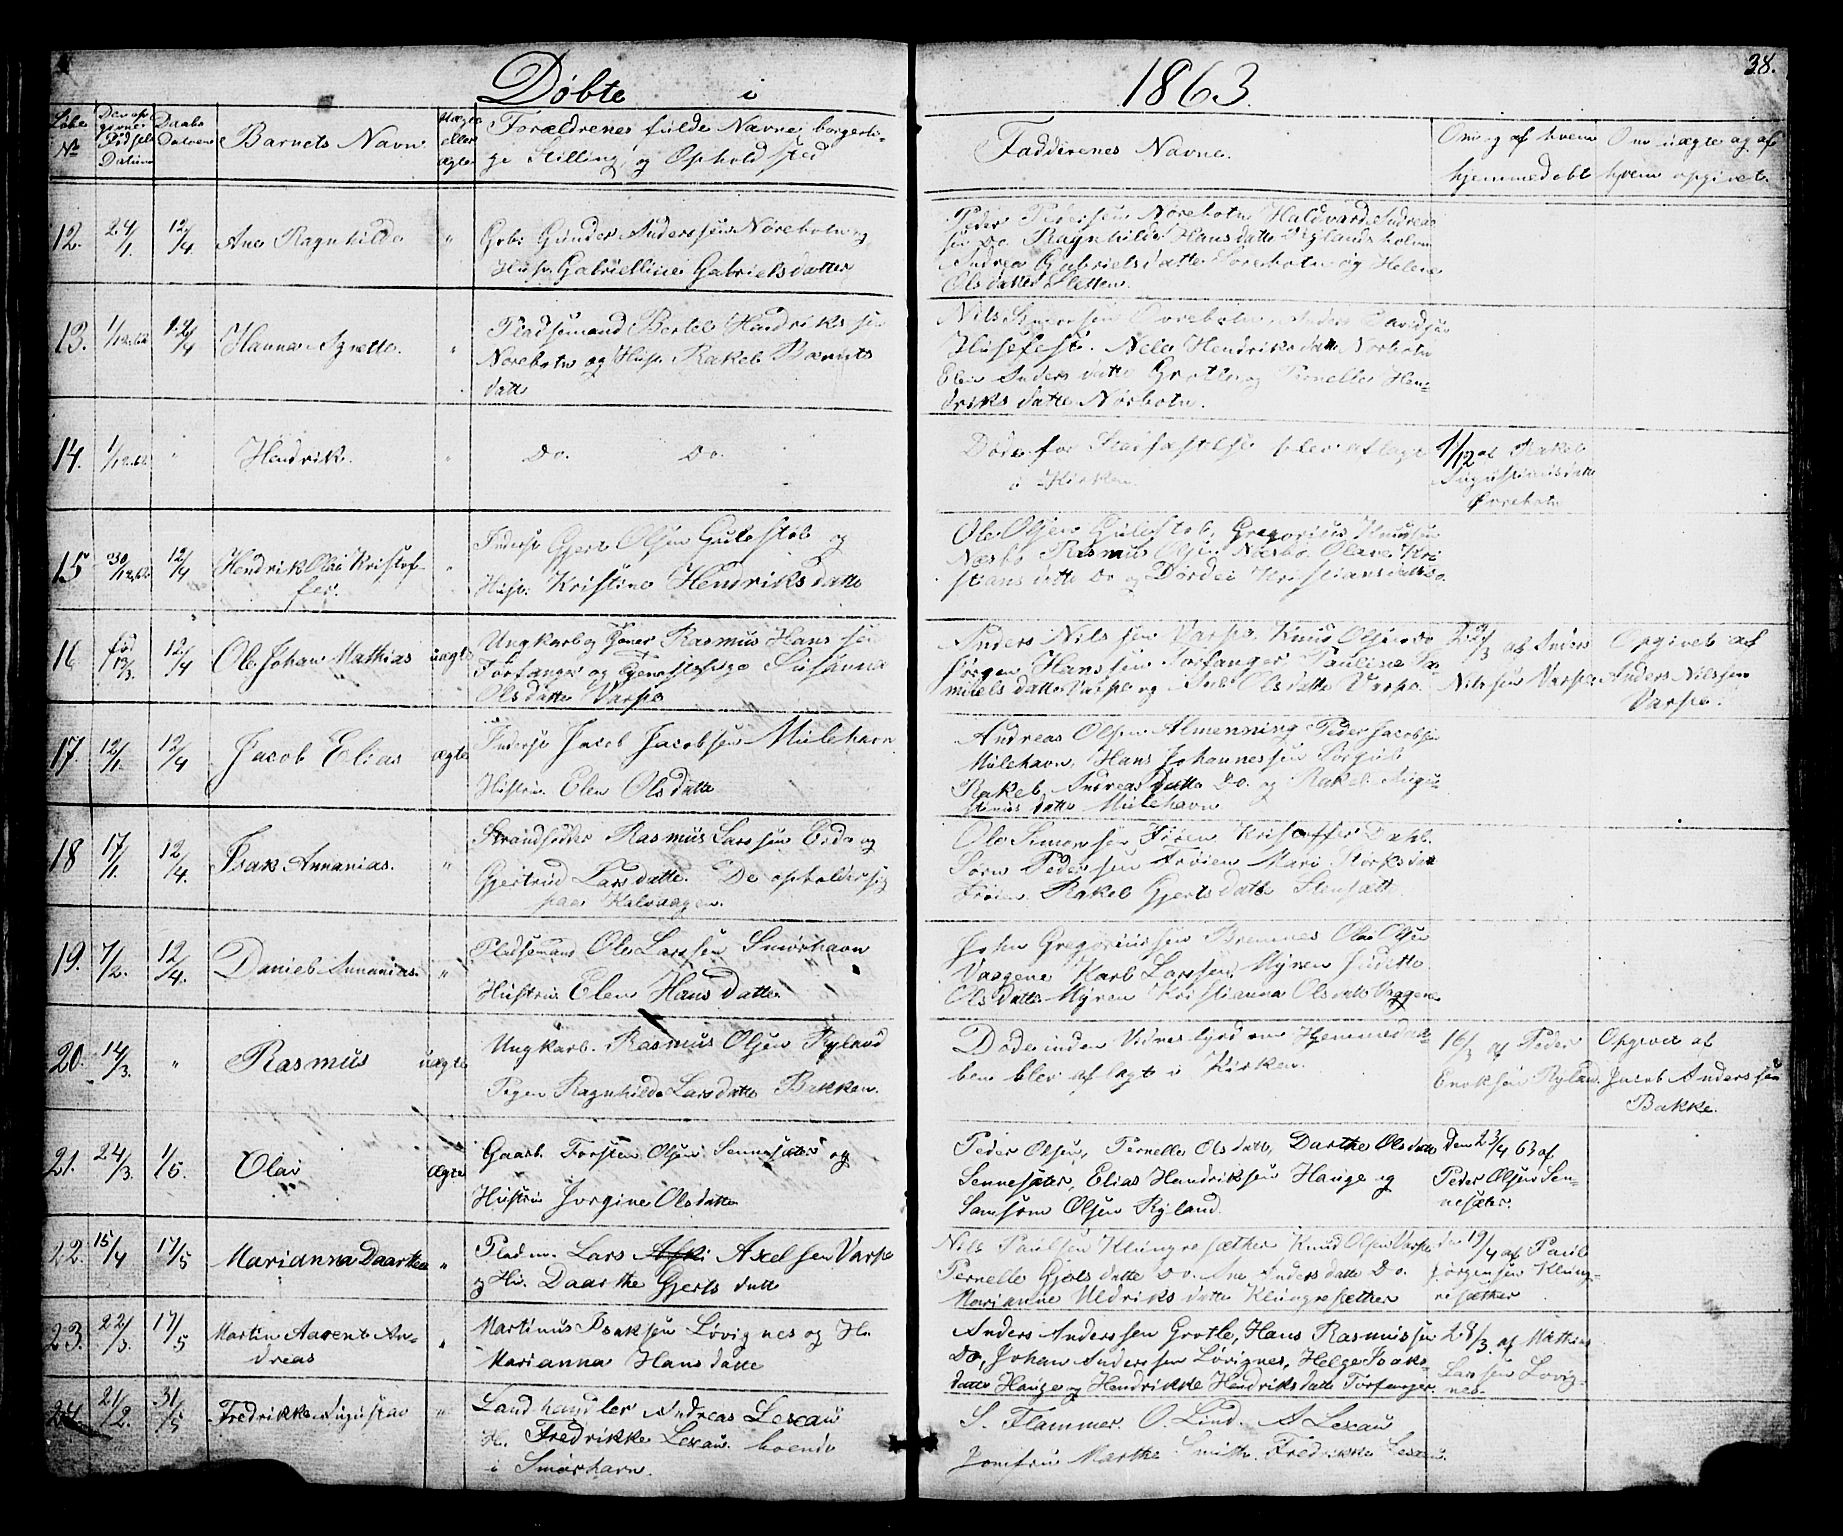 38.
Døbte i 1863.
Løbe No
Den opgivne Fødsels Datum
Daabs Datoen
Barnets Navn
Uægte eller ægte
Forældrenes fulde Navne, borgerli-
ge Stilling, og Opholdsted
Faddernes Navne.
Om og af hvem
hjemmedøbt
Om uægte og af
hvem opgivet.
12. 24/1. 12/4. Ane Ragnhilde "
Gbr: Gunder Anderssen Nørebotn og
Hustr. Gabrielline Gabrielsdatter
Peder Pedersen Nørebotn Haldvard Andreas
sen Do. Ragnhilde Hansdatte Ryglandsholm
Andrea Gabrielsdatte Nørebotn og Helene
Olsdatter Sletten.
13. 1/12.62 12/4 Hanna Agnette. "
Pladsemand Bertel Hendriks sen
Nørebotn og Hustr Rakel Berents
datte
Nils Andersen Øvrebotn Anders Davidsen
Husefest. Nele Hendriksdatte Nørbotn
Elen Andersdatte Grotle og Pernelle Hen-
driksdatte Nørbotn.
14. 1/12.62 " Hendrik. "
Do. Do.
Døde før Stadfæstelse blev aflagt
i Kirken.
1/12 af Rakel
Augustinusdatte
Øvrebotn
15 30/12.62 12/4 Hendrik Olai Kristof-
fer. "
Inderst Gjert Olsen Gulestøb og
Hustr. Kristine Hendriksdatte
Ole Olsen Gulestøb, Gregorius Knudsen
Næsbø Rasmus Olsen Næsbø Olave Kri
stiansdatte Do og Dordei Kristiansdatte Do.
16 fød 13/3. 12/4. Ole Johan Mathias uægte
Ungkarl og Tjener Rasmus Hanssen
Torfanger og Tjenestepige Susanna
Olsdatte Varpe
Anders Nilssen Varpe, Knud Olsen do
Jørgen Hanssen Torfanger Pauline Sa-
mulsdatte Varpe og Ane Olsdatte Varpe.
22/3 af Anders
Nilssen Varpe
Opgivet af
Anders Nilssen
Varpe.
17. 12/1. 12/4 Jacob Elias ægte
Inderst Jacob Jacobsen Mulehavn
Hustru Elen Olsdatte
Andreas Olsen Almenning Peder Jacobsen
Mulehavn, Hans Johannessen Sørgul-
Rakel Andreasdatte Do. og Rakel Augu-
stinusdatte Mulehavn
18 17/1. 12/4. Isak Annanias. "
Strandsidder Rasmus Larssen Eide og
Gjertrud Larsdatte. De opholder sig
paa Kalvaagen.
Ole Simonsen Frøien Kristoffer Dahl.
Søren Pedersen Frøien Mari
Frøien Rakel Gjertsdatte
19. 7/2. 12/4. Daniel Annanias "
Pladsemand Ole Larssen Smørhavn
Hustru Elen Hansdatte
John Gregoriussen Bremnes Ole Olsen
Vaagene Karl Larssen Myren Judette
Olsdatte Myren Kristianna Olsdatte Vaagene
20. 14/3. " Rasmus uægte
Ungkarl. Rasmus Olsen Ryland
Pigen Ragnhilde Larsdatte Bakken.
Døde inden Vidnesbyrd om Hjemmedaa-
ben blev aflagt i Kirken.
16/3 af Peder
Enoksen Ryland.
Opgivet af
Jacob Anderssen
Bakke.
21. 24/3. 1/5. Olai ægte
Gaarb. Torsten Olsen Sennesæter og
Hustru Jorgine Olsdatte
Peder Olsen, Pernelle Olsdatte, Darthe Olsdatte
Sennesæter, Elias Hendriksen Hauge og
Samson Olsen Ryland.
den 23/4 63 af
Peder Olsen Sen-
nesæter.
22. 15/4 17/5 Marianna Daarthea "
Pladsm. Lars Axelsen Varpe
og Hu. Daarthe Gjertsdatte
Nils Paulsen Klungresæther Knud Olsen Varpe
Pernelle Gjertsdatte Do. Ane Andersdatte Do.
Marianne Uldriksdatte Klungresæther
den 19/4 af Paul
Jørgensen Klung-
resæther
23. 22/3. 17/5 Martin Aarent An-
dreas "
Martinus Isaksen Løvignes og H.
Marianna Hansdatte
Anders Anderssen Grotle, Hans Rasmussen
Do, Johan Anderssen Løvignes, Helge Isaks-
datte Hauge og Hendrikke Hendriksdatte Torfanger
28/3. af Mathias
Larssen Løvig-
nes.
24. 21/12. 31/5 Fredrikke Augusta "
Landhandler Andreas Lexau
H. Fredrikke Lexau. boende
i Smørhavn.
S. Flammer. O. Lind. A Lexau
Jomfru Marthe Smith. Fredrikke Lexau.